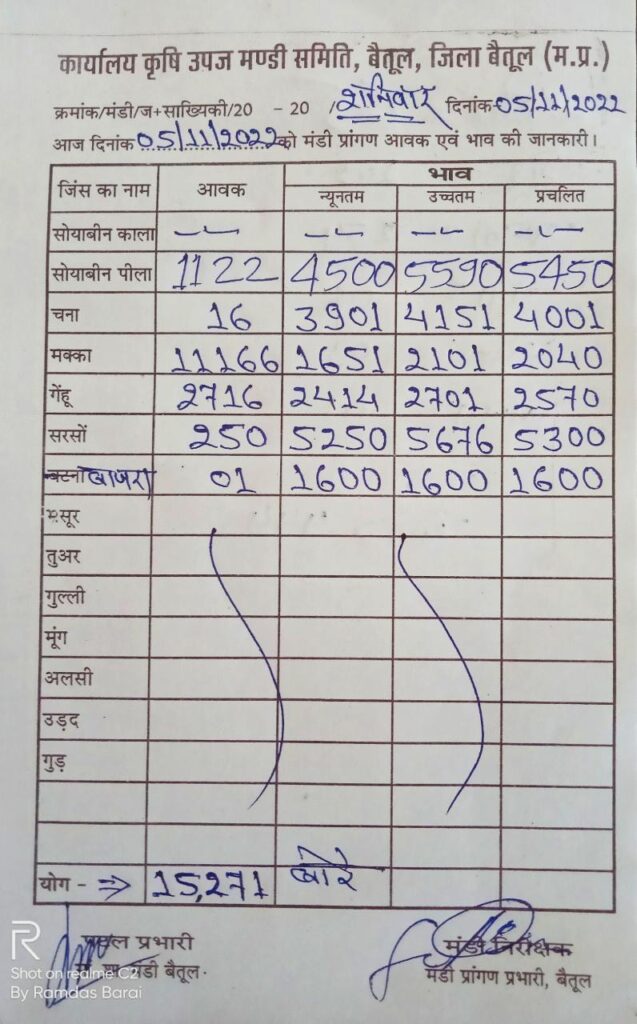 कार्यालय कृषि उपज मण्डी समिति, बैतूल, जिला बैतूल (म.प्र.)
क्रमांक/मंडी/ज+साख्यिकी/20 - 20 / शनिवार दिनांक 05/11/2022
आज दिनांक 05/11/2022 को मंडी प्रांगण आवक एवं भाव की जानकारी।
जिंस का नाम आवक भाव
न्यूनतम उच्चतम प्रचलित
सोयाबीन काला -- -- -- --
सोयाबीन पीला 1122 4500 5590 5450
चना 16 3901 4151 4001
मक्का 11166 1651 2101 2040
गेंहू 2716 2414 2701 2570
सरसों 250 5250 5676 5300
बटना बाजरा 01 1600 1600 1600
मसूर
तुअर
गुल्ली
मूंग
अलसी
उड़द
गुड़
योग - ⇒ 15,271 बोरे
प्रभारी
मंडी निरीक्षक
मंडी बैतूल.
मंडी प्रांगण प्रभारी, बैतूल
R
Shot on realme C2
By Ramdas Barai